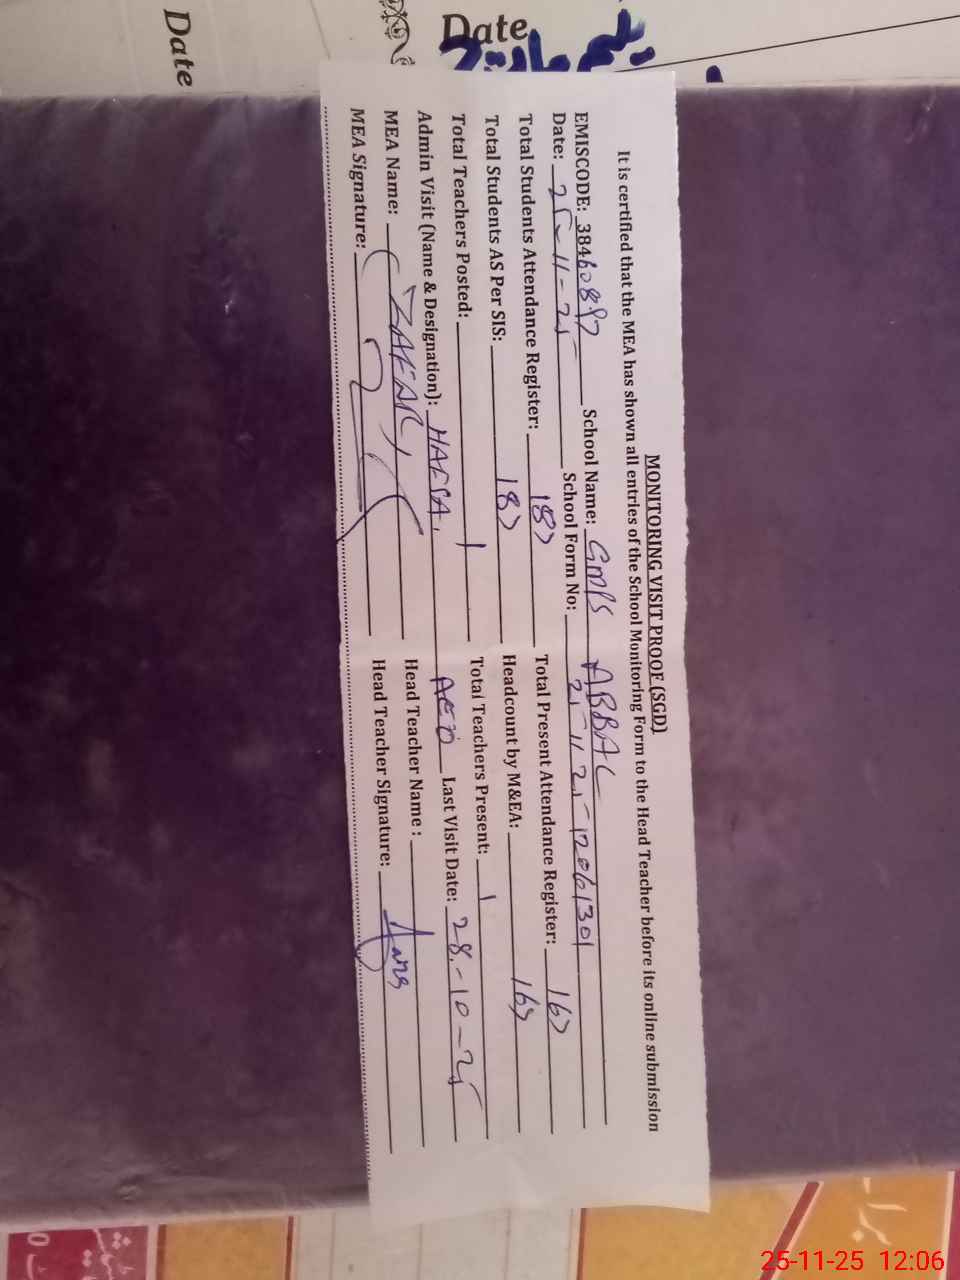 Date
Date
MONITORING VISIT PROOF (SGD)
It is certified that the MEA has shown all entries of the School Monitoring Form to the Head Teacher before its online submission
EMISCODE: 38460897 School Name: GMPS ABBAL
Date: 25-11-25 School Form No: 25-11 25-12061301
Total Students Attendance Register: 187 Total Present Attendance Register: 167
Total Students AS Per SIS: 187 Headcount by M&EA: 167
Total Teachers Posted: 1 Total Teachers Present: 1
Admin Visit (Name & Designation): HAFSA. AEO Last Visit Date: 28-10-25
MEA Name: ZAFAR Head Teacher Name :
MEA Signature: Head Teacher Signature:
25-11-25 12:06